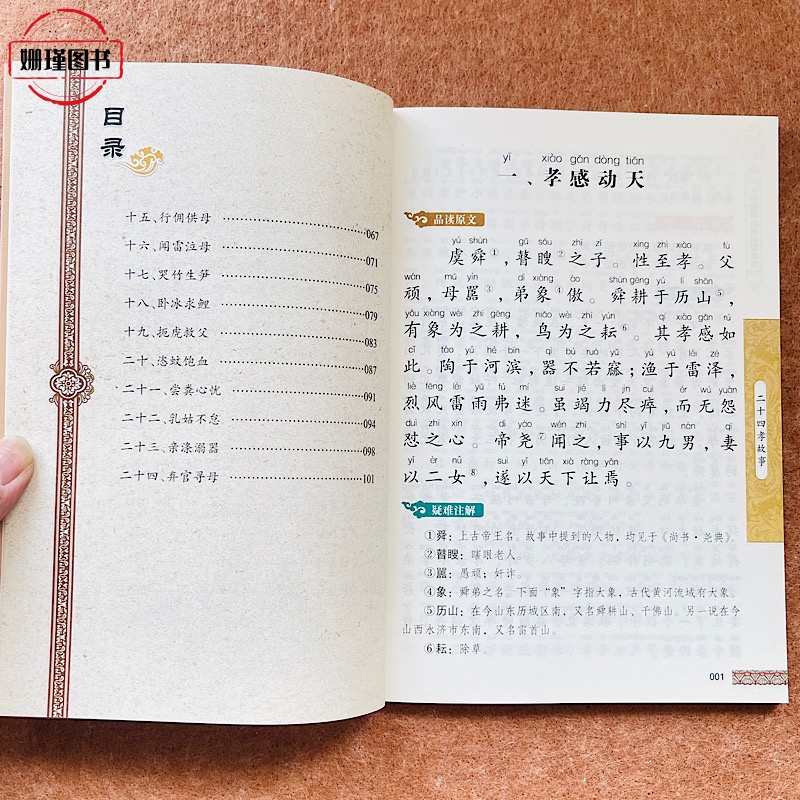 姗瑾图书
目录
十五、行佣供母 067
十六、闻雷泣母 071
十七、哭竹生笋 075
十八、卧冰求鲤 079
十九、扼虎救父 083
二十、恣蚊饱血 087
二十一、尝粪心忧 091
二十二、乳姑不怠 094
二十三、亲涤溺器 098
二十四、弃官寻母 101
yī xiào gǎn dòng tiān
一、孝感动天
品读原文
yú shùn gǔ sǒu zhī zǐ xìng zhì xiào fù
虞舜①，瞽瞍②之子。性至孝。父
wán mǔ yín dì xiàng ào shùn gēng yú lì shān
顽，母嚚③，弟象④傲。舜耕于历山⑤，
yǒu xiàng wèi zhī gēng niǎo wèi zhī yún qí xiào gǎn rú
有象为之耕，鸟为之耘⑥。其孝感如
cǐ táo yú hé bīn qì bù ruò yǔ yú yú léi zé
此。陶于河滨，器不若蓏；渔于雷泽，
liè fēng léi yǔ fú mí suī jié lì jìn cuì ér wú yuàn
烈风雷雨弗迷。虽竭力尽瘁，而无怨
duì zhī xīn dì yáo wén zhī shì yǐ jiǔ nán qī
怼之心。帝尧⑦闻之，事以九男，妻
yǐ èr nǚ suì yǐ tiān xià ràng yān
以二女⑧，遂以天下让焉。
疑难注解
①舜：上古帝王名。故事中提到的人物，均见于《尚书·尧典》。
②瞽瞍：瞎眼老人。
③嚚：愚顽；奸诈。
④象：舜弟之名。下面“象”字指大象，古代黄河流域有大象。
⑤历山：在今山东历城区南，又名舜耕山、千佛山。另一说在今
山西永济市东南，又名雷首山。
⑥耘：除草。
二十四孝故事
001